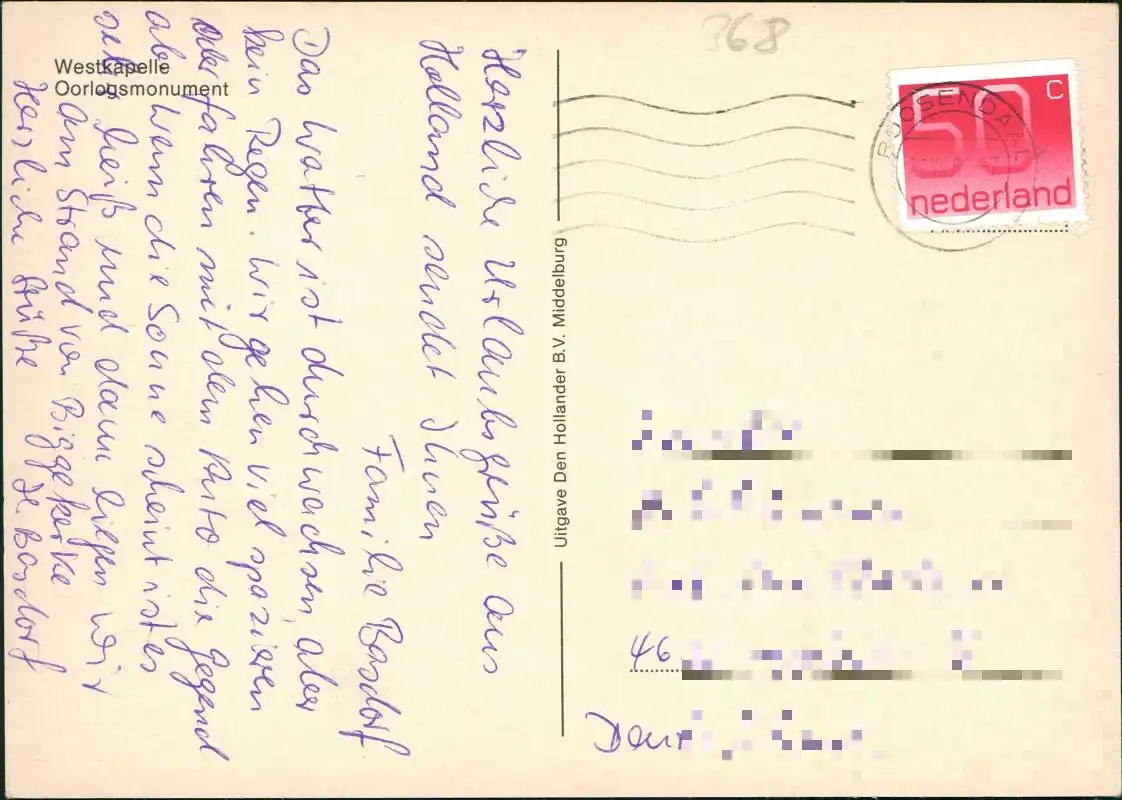 Westkapelle
Oorlogsmonument
Herzliche Urlaubsgrüße aus
Holland sendet Ihnen
Familie Basdorf
Das Watter ist durchwachsen, aber
kein Regen. Wir gehen viel spazieren
oder fahren mit dem Auto die Gegend
ab. Wenn die Sonne scheint ist es
sehr heiß und dann liegen wir
am Strand von Biggekerke
Herzliche Grüße H. Basdorf
Uitgave Den Hollander B.V. Middelburg
368
ROOSENDAAL
60 C
nederland
46